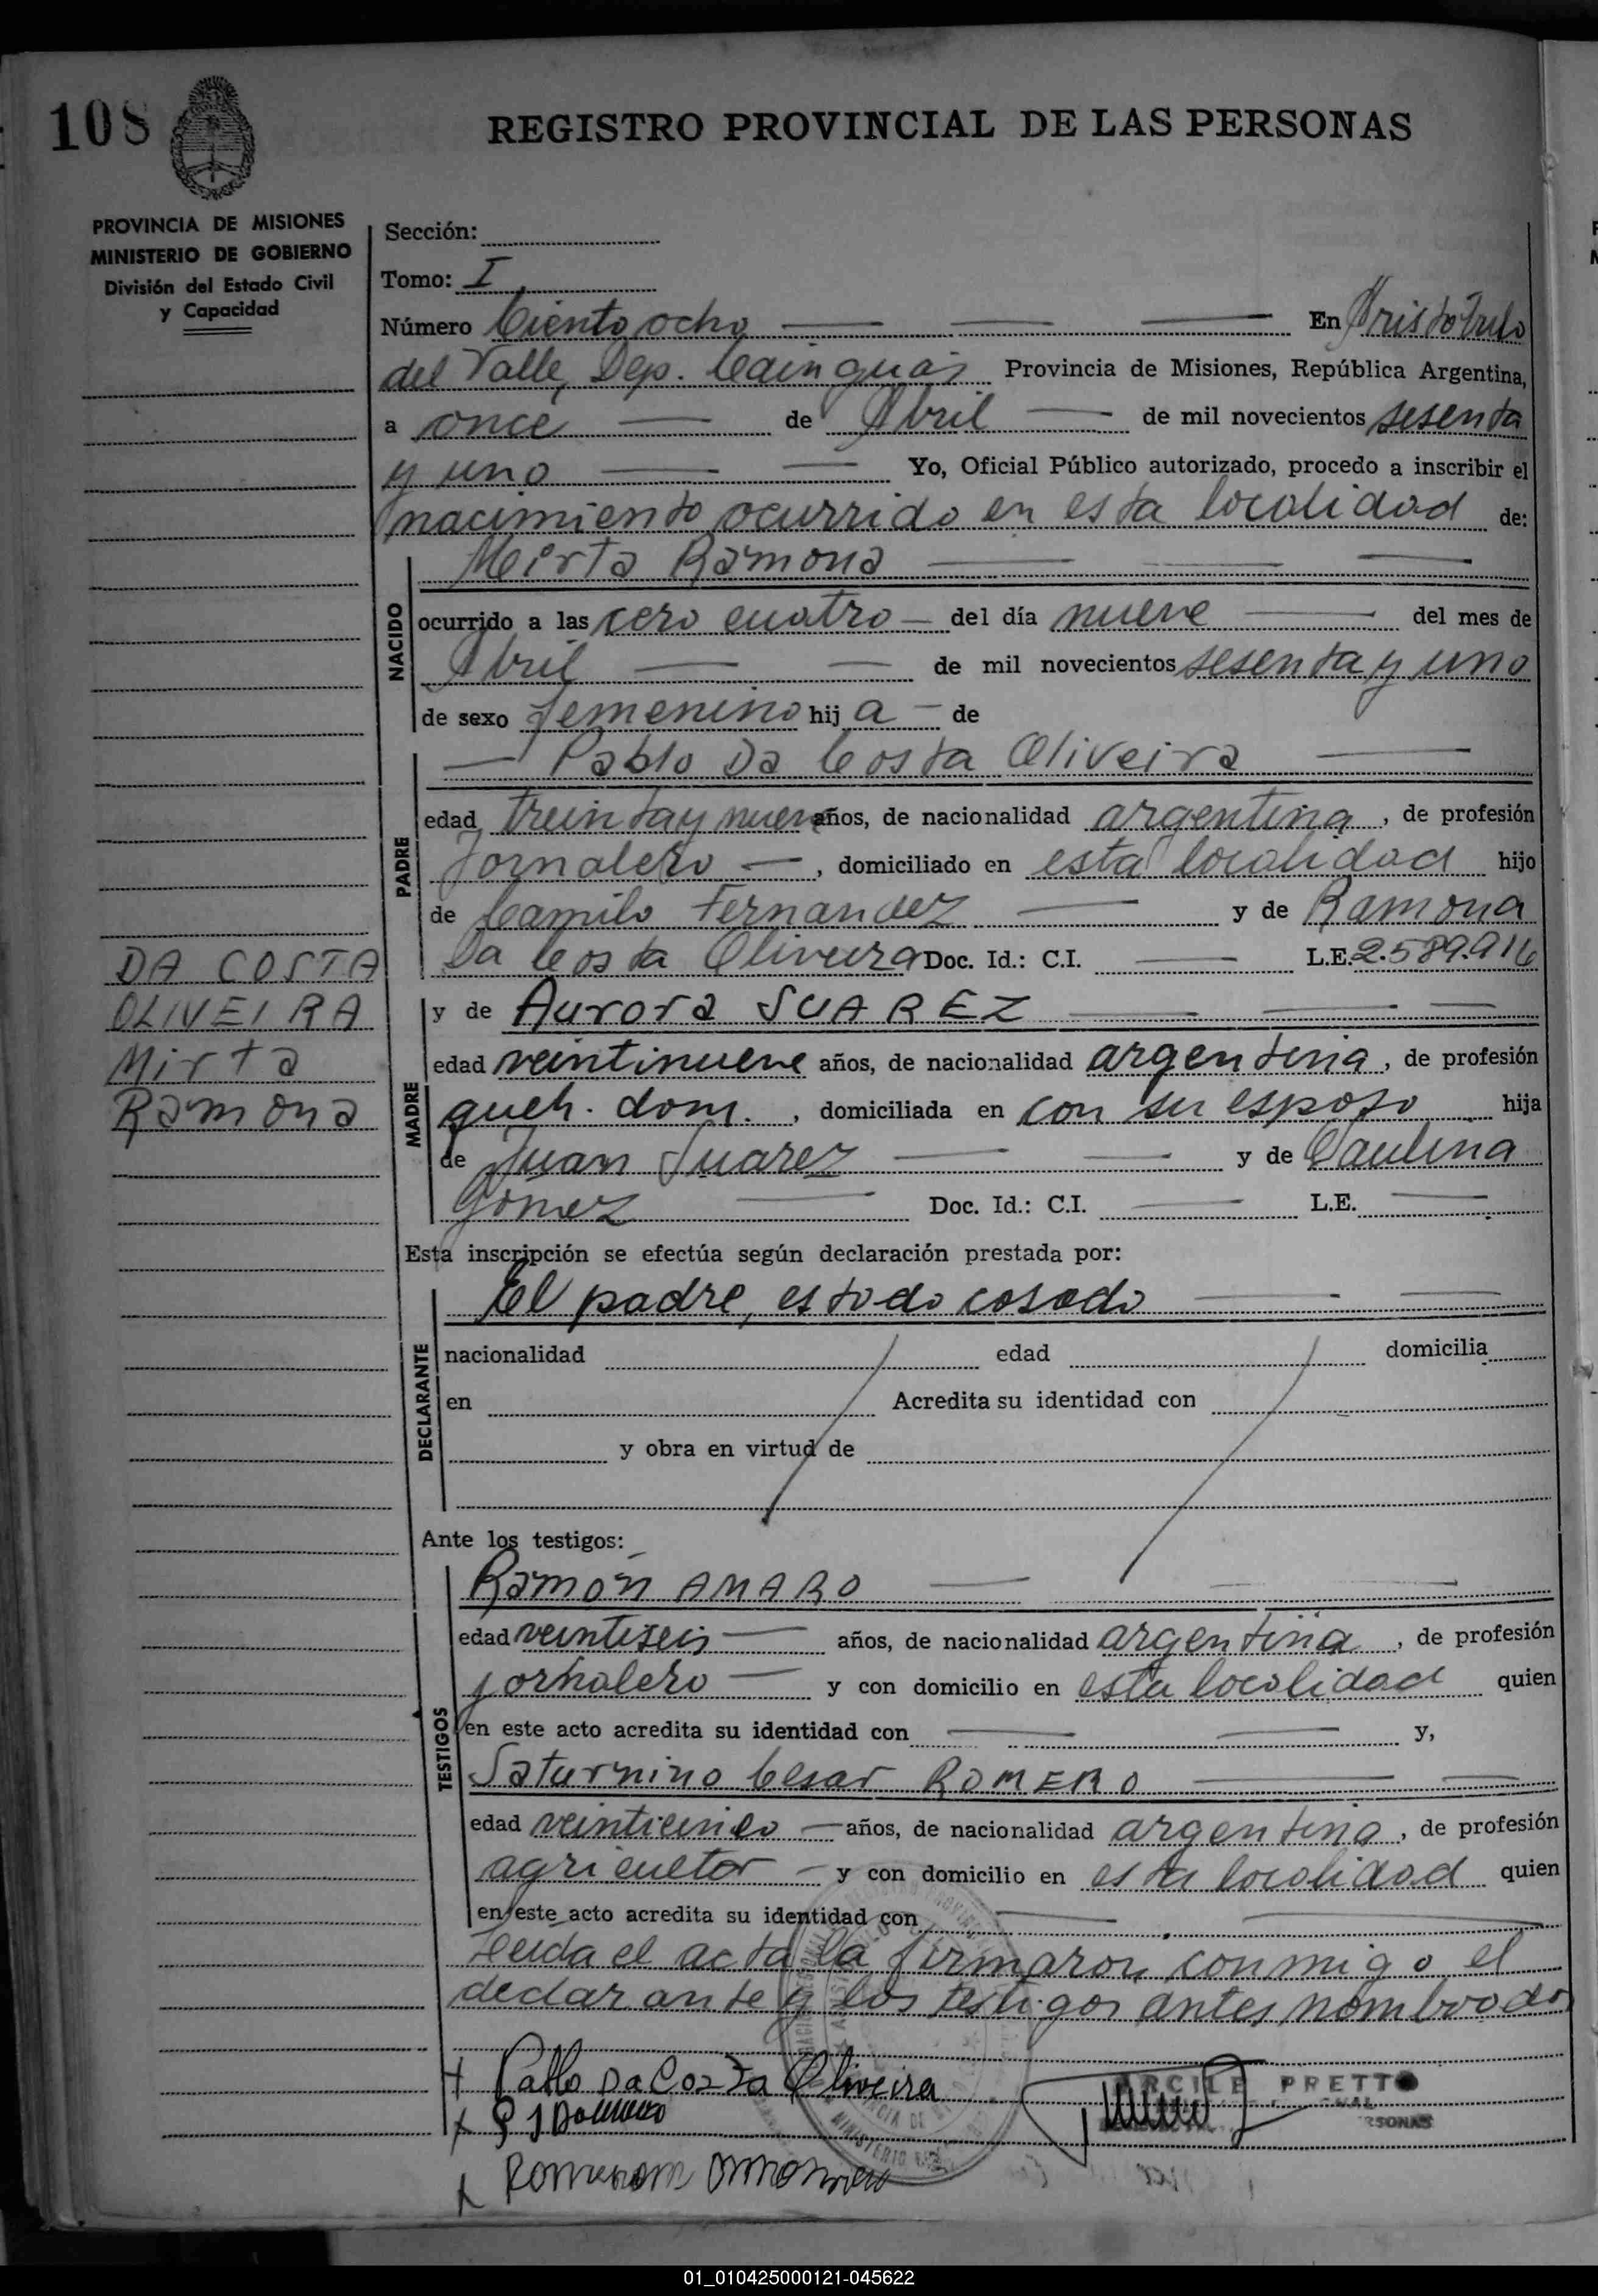 108
REGISTRO PROVINCIAL DE LAS PERSONAS
PROVINCIA DE MISIONES
MINISTERIO DE GOBIERNO
División del Estado Civil
y Capacidad
Sección:
Tomo: I
Número Ciento ocho En Aristóbulo
del Valle, Dep. Cainguás Provincia de Misiones, República Argentina,
a once de Abril de mil novecientos sesenta
y uno Yo, Oficial Público autorizado, procedo a inscribir el
nacimiento ocurrido en esta localidad de:
Mirta Ramona
NACIDO
ocurrido a las cero cuatro del día nueve del mes de
Abril de mil novecientos sesenta y uno
de sexo femenino hij a de
Pablo Da Costa Oliveira
PADRE
edad treinta y nueve años, de nacionalidad argentina, de profesión
Jornalero, domiciliado en esta localidad hijo
de Camilo Fernandez y de Ramona
Da Costa Oliveira Doc. Id.: C.I. L.E. 2.589.916
DA COSTA
OLIVEIRA
Mirta
Ramona
y de Aurora SUAREZ
MADRE
edad veintinueve años, de nacionalidad argentina, de profesión
queh. dom., domiciliada en con su esposo hija
de Juan Suarez y de Paulina
Gomez Doc. Id.: C.I. L.E.
Esta inscripción se efectúa según declaración prestada por:
El padre, estado casado
DECLARANTE
nacionalidad edad domicilia
en Acredita su identidad con
y obra en virtud de
Ante los testigos:
Ramón AMARO
TESTIGOS
edad veintiseis años, de nacionalidad argentina, de profesión
jornalero y con domicilio en esta localidad quien
en este acto acredita su identidad con y,
Saturnino Cesar ROMERO
edad veinticinco años, de nacionalidad argentina, de profesión
agricultor y con domicilio en esta localidad quien
en este acto acredita su identidad con
Leida el acta la firmaron conmigo el
declarante y los testigos antes nombrados
Pablo Da Costa Oliveira
ARCILE PRETTO
01_010425000121-045622